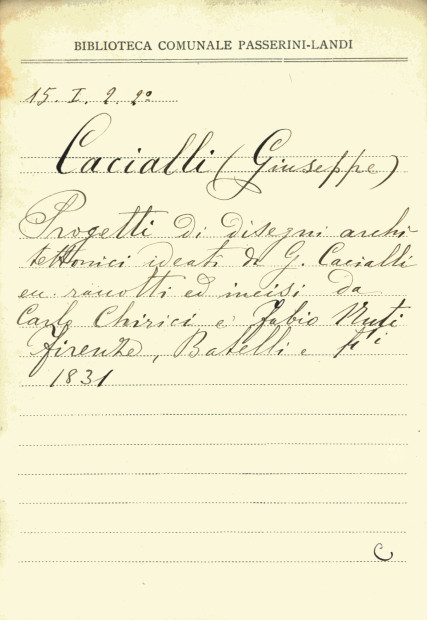 BIBLIOTECA COMUNALE PASSERINI-LANDI
15. I. 2. 2º
Cacialli (Giuseppe)
Progetti di disegni archi-
tettonici ideati da G. Cacialli
ed incisi da
Carlo Chirici e Fabio Nuti
Firenze, Batelli e fi
1831
C